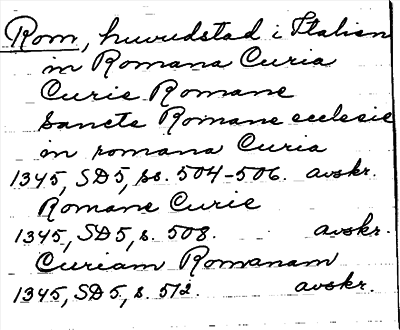 Rom, huvudstad i Italien
in Romana Curia
Curie Romane
Sancte Romane ecclesie
in romana Curia
1345, SD5, ss. 504-506. avskr.
Romane Curie
1345, SD5, s. 508. avskr.
Curiam Romanam
1345, SD5, s. 512. avskr.